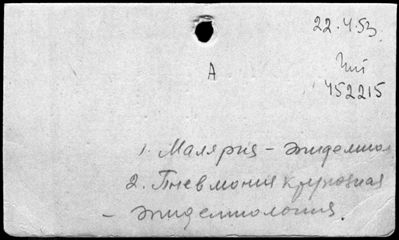 22.4.53
A
452215
1. Малярия - эпидемиол
2. Пневмония крупозная
- эпидемиология.